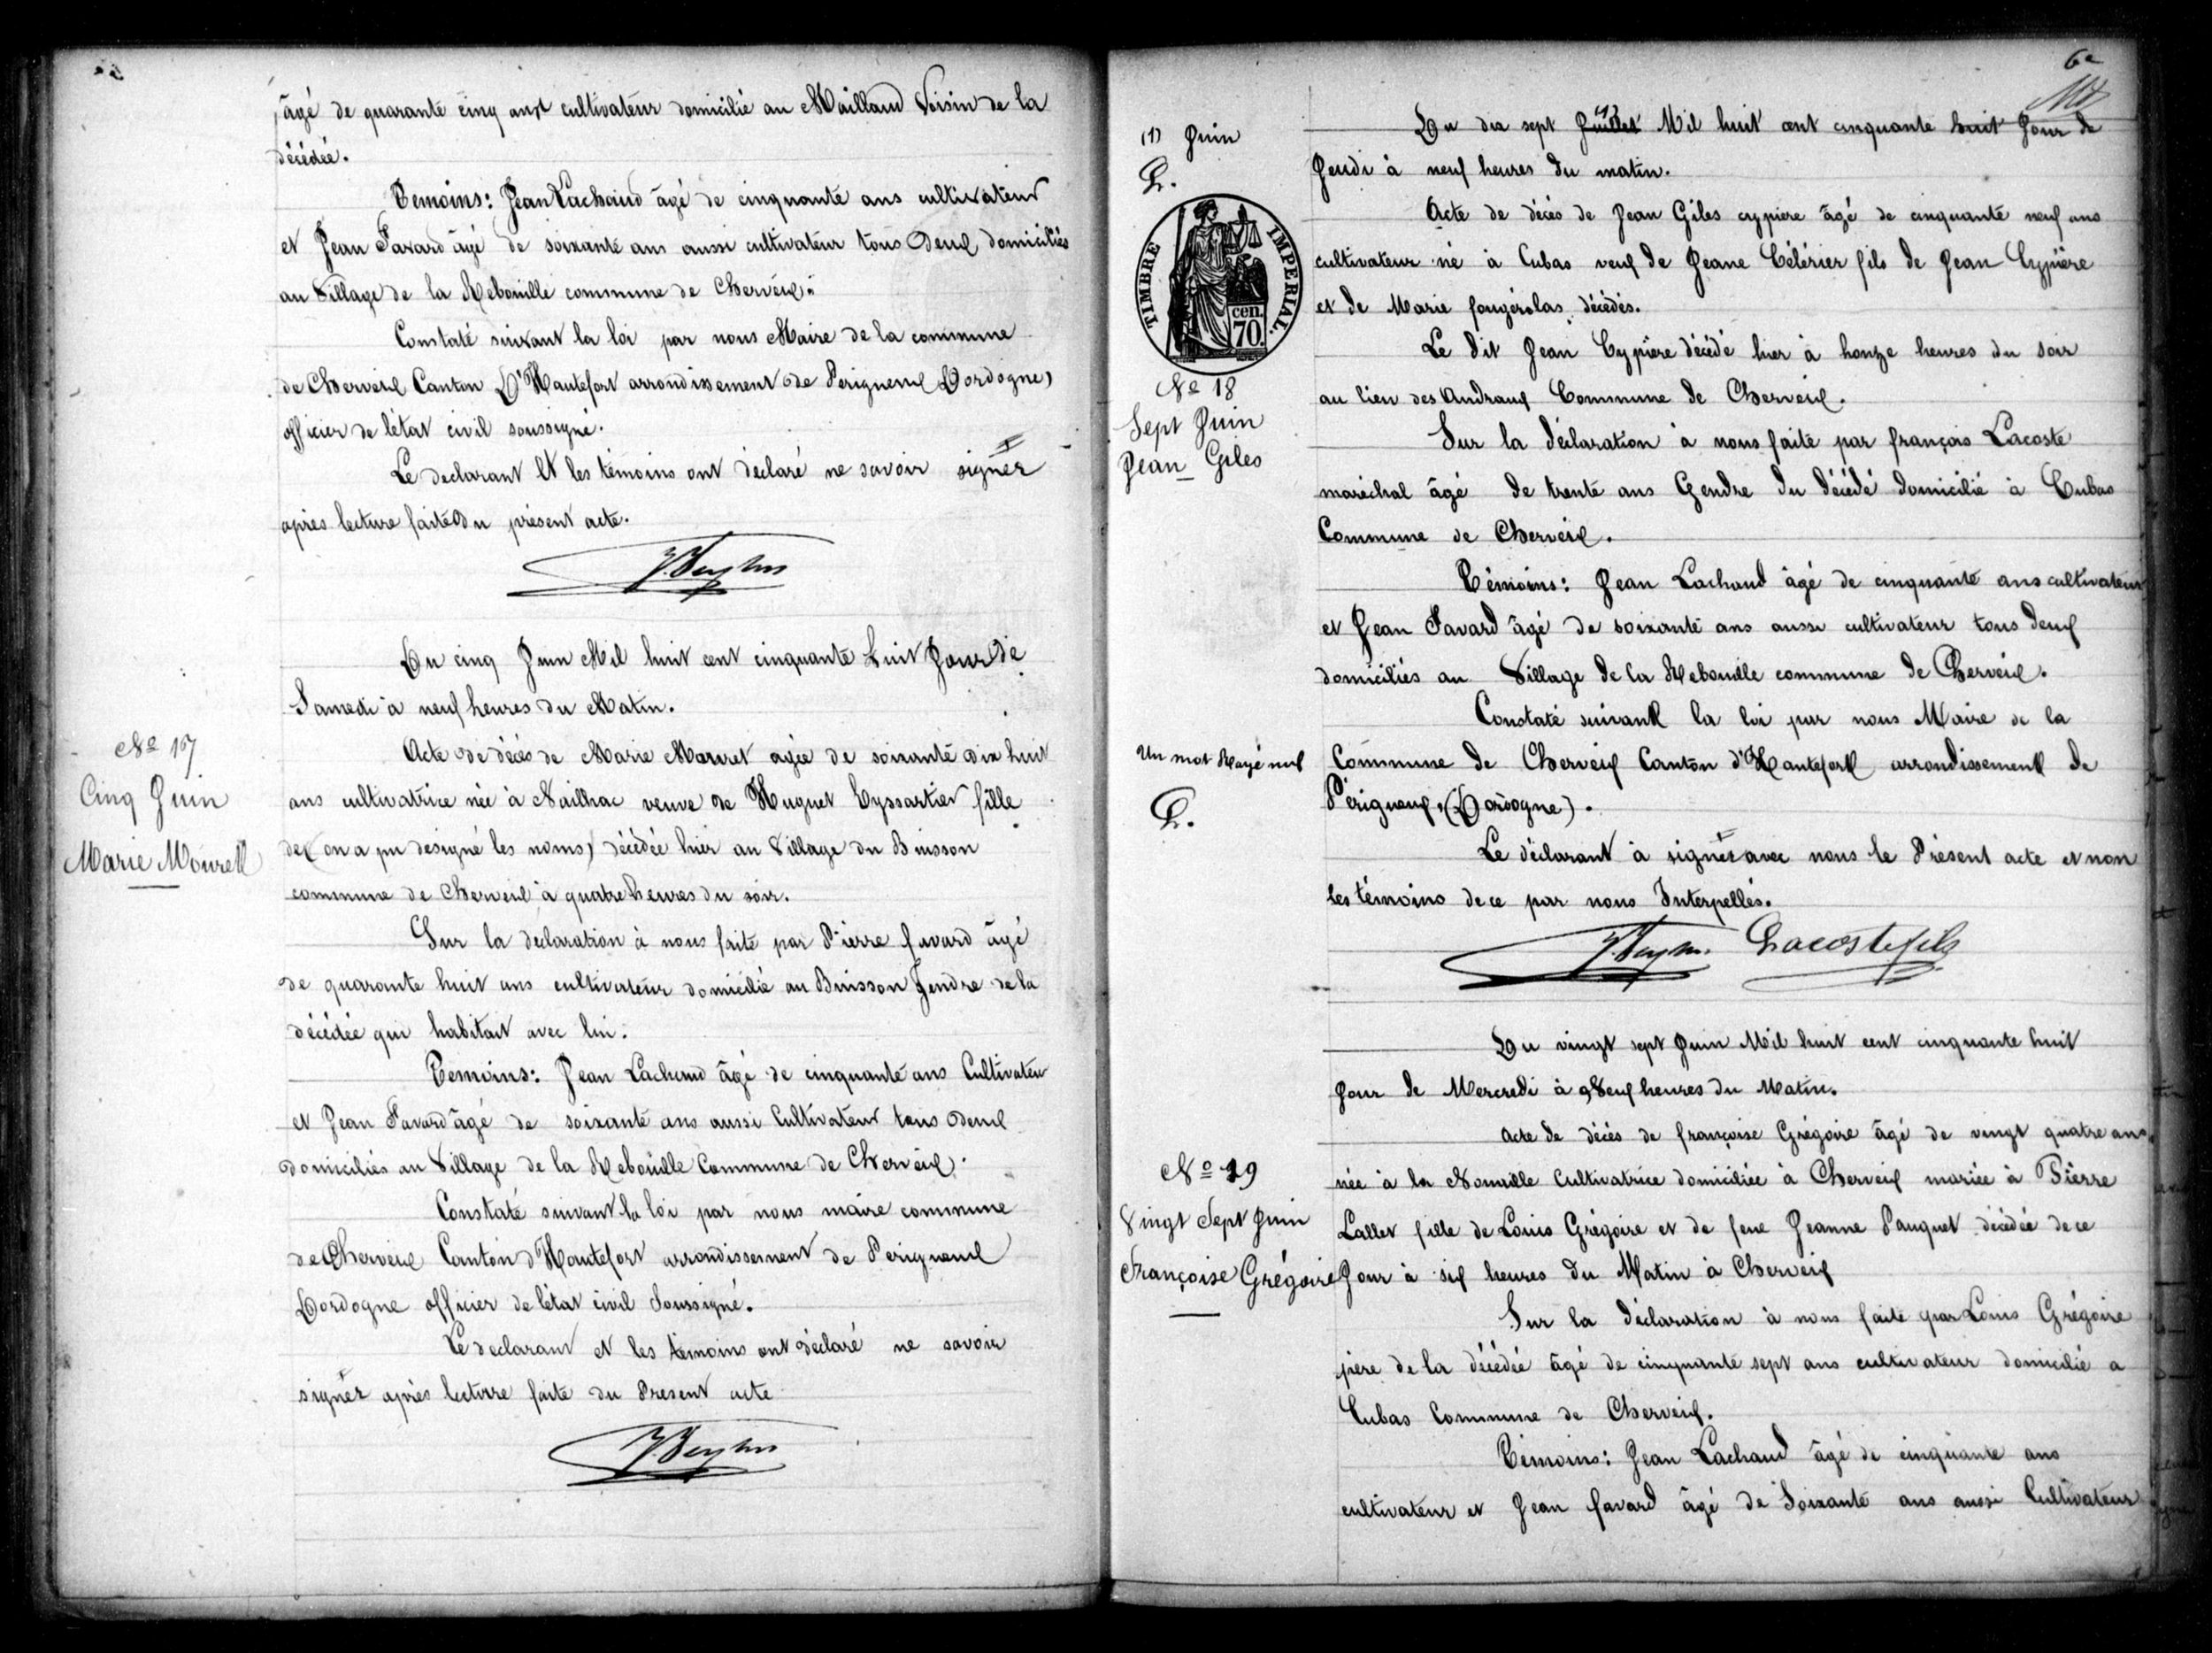 âgé de quarante cinq ans cultivateur domicilié au Maillaud Voisin de la
décédée.
Temoins: Jean Lachaud âgé de cinquante ans cultivateur
et Jean Favard âgé de soixante ans aussi cultivateur tous deux domiciliés
au Village de la Rebouille commune de Cherveix.
Constaté suivant la loi par nous Maire de la commune
de Cherveix Canton D'Hautefort arrondissement de Perigueux (Dordogne)
officier de l'état civil soussigné.
Le declarant Et les témoins ont déclaré ne savoir signer
après lecture faite du présent acte.
Du cinq Juin Mil huit cent cinquante huit Jour de
Samedi à neuf heures du Matin.
Nº 17
Cinq Juin
Marie Mouret
Acte de décès de Marie Mouret agée de soixante dix huit
ans cultivatrice née à Nailhac veuve de Huguet Eyssartier fille
de (on a pu designé les noms) décédée hier au Village du Buisson
commune de Cherveix à quatre heures du soir.
Sur la declaration à nous faite par Pierre favard âgé
de quarante huit ans cultivateur domicilié au Buisson Gendre de la
décédée qui habitait avec lui.
Temoins: Jean Lachaud âgé de cinquante ans Cultivateur
et Jean Favard âgé de soixante ans aussi Cultivateur tous deux
domiciliés au Village de la Rebouille Commune de Cherveix.
Constaté suivant la loi par nous maire commune
de Cherveix Canton d'Hautefort arrondissement de Perigueux
Dordogne officier de l'état civil Soussigné.
Le declarant et les témoins ont déclaré ne savoir
signer après lecture faite du Present acte
6e
(1) Juin
TIMBRE IMPERIAL.
cen.
70.
Nº 18
Sept Juin
Jean Giles
Du dix sept Juillet (1) Mil huit cent cinquante huit Jour de
Jeudi à neuf heures du matin.
Acte de décès de Jean Giles cypiere âgé de cinquante neuf ans
cultivateur né à Cubas veuf de Jeane Célérier fils de Jean Cypière
et de Marie fougérolas, décédés.
Le dit Jean Cypière décédé hier à honze heures du soir
au lieu des Andraux Commune de Cherveix.
Sur la déclaration à nous faite par françois Lacoste
maréchal âgé de trente ans Gendre du décédé domicilié à Cubas
Commune de Cherveix.
Témoins: Jean Lachaud âgé de cinquante ans cultivateur
et Jean Favard âgé de soixante ans aussi cultivateur tous deux
domiciliés au Village de la Rebouille commune de Cherveix.
Constaté suivant la loi par nous Maire de la
Un mot Rayé nul
Commune de Cherveix Canton d'Hautefort arrondissement de
Périgueux, (Dordogne).
Le déclarant à signer avec nous le Présent acte et non
les témoins de ce par nous Interpellés.
Lacoste fils
Du vingt sept Juin Mil huit cent cinquante huit
Jour de Mercredi à Neuf heures du Matin.
Nº 19
Vingt Sept Juin
Françoise Grégoire
Acte de décès de françoise Grégoire âgé de vingt quatre ans
née à la Nouaille Cultivatrice domiciliée à Cherveix mariée à Pierre
Lallet fille de Louis Grégoire et de feue Jeanne Pauquet décédée de ce
Jour à six heures du Matin à Cherveix
Sur la déclaration à nous faite par Louis Grégoire
père de la décédée âgé de cinquante sept ans cultivateur domicilié a
Cubas Commune de Cherveix.
Témoins: Jean Lachaud âgé de cinquante ans
cultivateur et Jean favard âgé de Soixante ans aussi Cultivateur